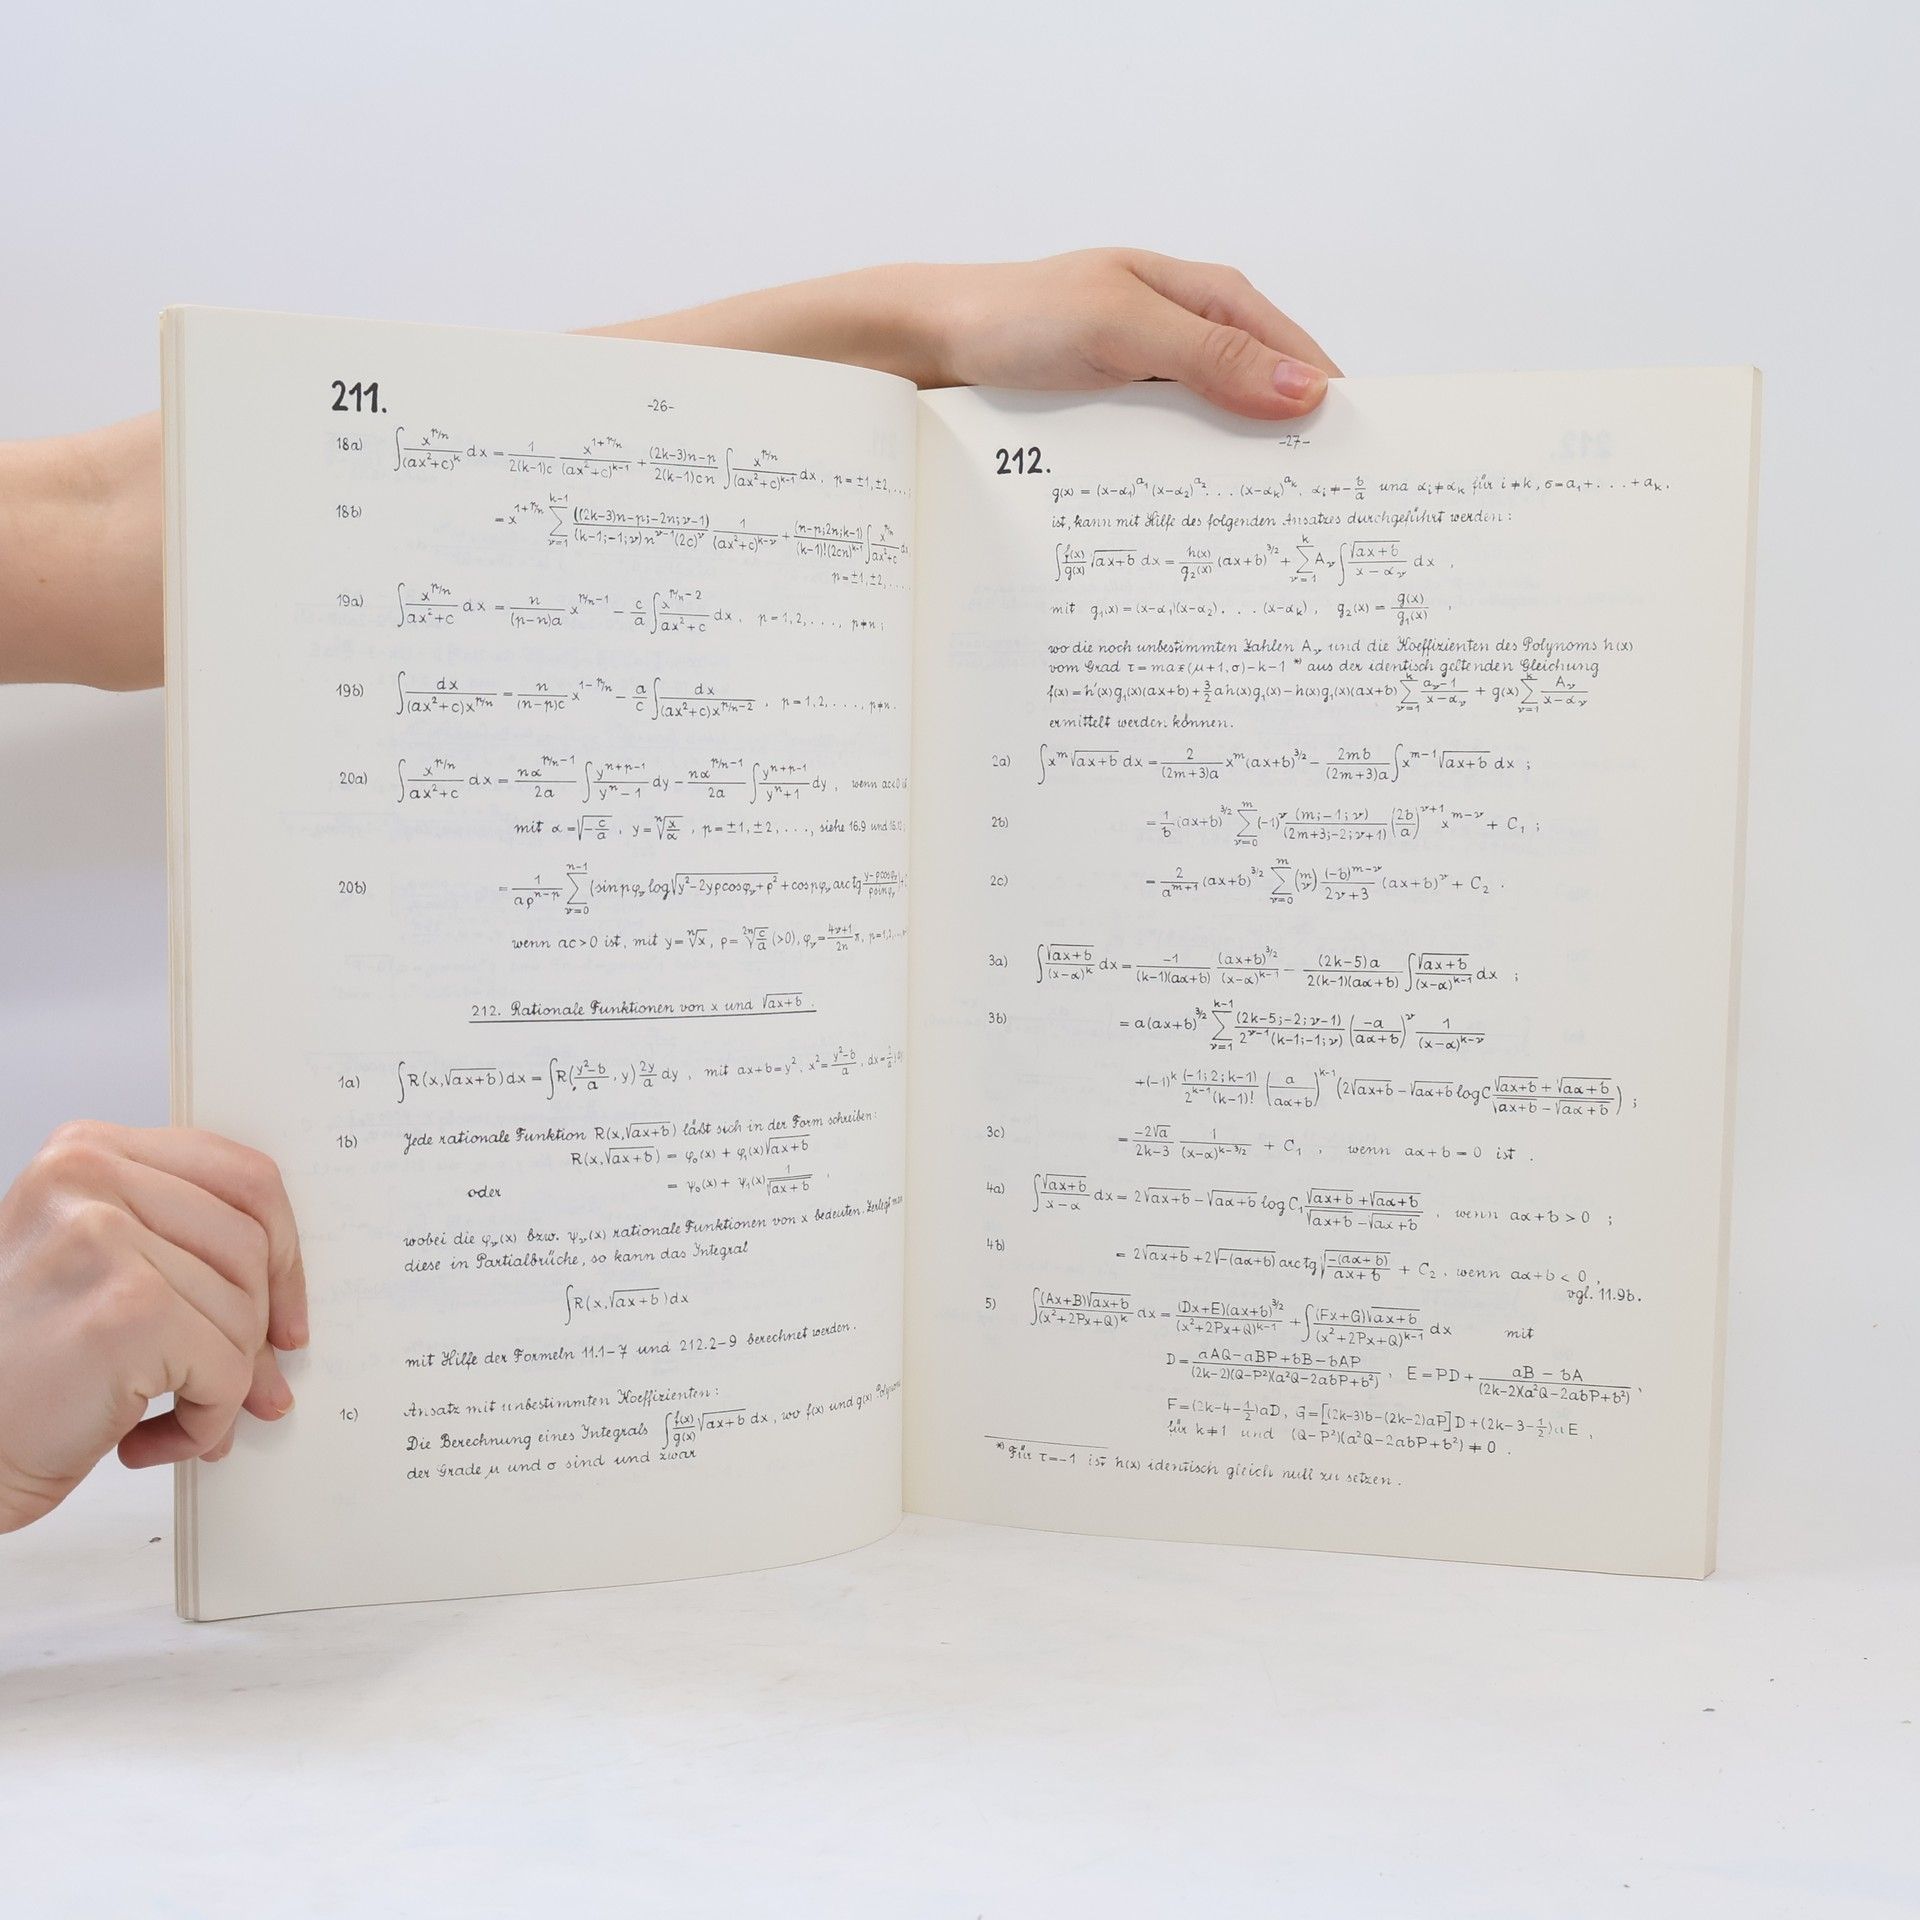 211.
-26-
18a) ∫ x^{p/n}/(ax²+c)^k dx = 1/(2(k-1)c) x^{1+p/n}/(ax²+c)^{k-1} + ((2k-3)n-p)/(2(k-1)cn) ∫ x^{p/n}/(ax²+c)^{k-1} dx, p=±1,±2,...;
18b) = x^{1+p/n} ∑_{ν=1}^{k-1} ((2k-3)n-p;-2n;ν-1)/((k-1;-1;ν)n^{ν-1}(2c)^ν) 1/(ax²+c)^{k-ν} + (n-p;2n;k-1)/((k-1)!(2cn)^{k-1}) ∫ x^{p/n}/(ax²+c) dx
p=±1,±2,....
19a) ∫ x^{p/n}/(ax²+c) dx = n/((p-n)a) x^{p/n-1} - c/a ∫ x^{p/n-2}/(ax²+c) dx, p=1,2,..., p≠n;
19b) ∫ dx/((ax²+c)x^{p/n}) = n/((n-p)c) x^{1-p/n} - a/c ∫ dx/((ax²+c)x^{p/n-2}), p=1,2,..., p≠n.
20a) ∫ x^{p/n}/(ax²+c) dx = nα^{p/n-1}/2a ∫ y^{n+p-1}/(y^n-1) dy - nα^{p/n-1}/2a ∫ y^{n+p-1}/(y^n+1) dy, wenn ac<0
mit α=√(-c/a), y=ⁿ√(x/α), p=±1,±2,..., siehe 16.9 und
20b) = 1/(aρ^{n-p}) ∑_{ν=0}^{n-1} (sin pφ_ν log√(y²-2yρcosφ_ν+ρ²) + cos pφ_ν arctg (y-ρcosφ_ν)/(ρsinφ_ν))
wenn ac>0 ist, mit y=ⁿ√x, ρ=²ⁿ√(c/a) (>0), φ_ν=(4ν+1)/2n π, p=1,2,
212. Rationale Funktionen von x und √(ax+b).
1a) ∫R(x,√(ax+b))dx = ∫R((y²-b)/a, y) 2y/a dy, mit ax+b=y², x²=(y²-b)/a, dx=
1b) Jede rationale Funktion R(x,√(ax+b)) läßt sich in der Form schreiben:
R(x,√(ax+b)) = φ₀(x) + φ₁(x)√(ax+b)
oder = ψ₀(x) + ψ₁(x) 1/√(ax+b),
wobei die φ_ν(x) bzw. ψ_ν(x) rationale Funktionen von x bedeuten. Zerlegt man
diese in Partialbrüche, so kann das Integral
∫R(x,√(ax+b))dx
mit Hilfe der Formeln 11.1-7 und 212.2-9 berechnet werden.
1c) Ansatz mit unbestimmten Koeffizienten:
Die Berechnung eines Integrals ∫ f(x)/g(x) √(ax+b) dx, wo f(x) und g(x) Polynome
der Grade μ und σ sind und zwar
212.
-27-
g(x) = (x-α₁)^{a₁}(x-α₂)^{a₂}...(x-α_k)^{a_k}, α_i≠-b/a und α_i≠α_k für i≠k, σ=a₁+...+a_k,
ist, kann mit Hilfe des folgenden Ansatzes durchgeführt werden:
∫ f(x)/g(x) √(ax+b) dx = h(x)/g₂(x) (ax+b)^{3/2} + ∑_{ν=1}^{k} A_ν ∫ √(ax+b)/(x-α_ν) dx,
mit g₁(x)=(x-α₁)(x-α₂)...(x-α_k), g₂(x)=g(x)/g₁(x),
wo die noch unbestimmten Zahlen A_ν und die Koeffizienten des Polynoms h(x)
vom Grad τ=max(μ+1,σ)-k-1 *) aus der identisch geltenden Gleichung
f(x)=h'(x)g₁(x)(ax+b)+3/2 ah(x)g₁(x)-h(x)g₁(x)(ax+b)∑_{ν=1}^{k} (a_ν-1)/(x-α_ν) + g(x)∑_{ν=1}^{k} A_ν/(x-α_ν)
ermittelt werden können.
2a) ∫x^m √(ax+b) dx = 2/((2m+3)a) x^m(ax+b)^{3/2} - 2mb/((2m+3)a) ∫x^{m-1}√(ax+b) dx ;
2b) = 1/b (ax+b)^{3/2} ∑_{ν=0}^{m} (-1)^ν (m;-1;ν)/(2m+3;-2;ν+1) (2b/a)^{ν+1} x^{m-ν} + C₁ ;
2c) = 2/a^{m+1} (ax+b)^{3/2} ∑_{ν=0}^{m} (m ν) (-b)^{m-ν}/(2ν+3) (ax+b)^ν + C₂ .
3a) ∫ √(ax+b)/(x-α)^k dx = -1/((k-1)(aα+b)) (ax+b)^{3/2}/(x-α)^{k-1} - (2k-5)a/(2(k-1)(aα+b)) ∫ √(ax+b)/(x-α)^{k-1} dx ;
3b) = a(ax+b)^{3/2} ∑_{ν=1}^{k-1} (2k-5;-2;ν-1)/(2^{ν-1}(k-1;-1;ν)) (-a/(aα+b))^ν 1/(x-α)^{k-ν}
+(-1)^k (-1;2;k-1)/(2^{k-1}(k-1)!) (a/(aα+b))^{k-1} (2√(ax+b) - √(aα+b) log C (√(ax+b)+√(aα+b))/(√(ax+b)-√(aα+b))) ;
3c) = -2√a/(2k-3) 1/(x-α)^{k-3/2} + C₁ , wenn aα+b=0 ist .
4a) ∫ √(ax+b)/(x-α) dx = 2√(ax+b) - √(aα+b) log C₁ (√(ax+b)+√(aα+b))/(√(ax+b)-√(aα+b)) , wenn aα+b>0 ;
4b) = 2√(ax+b) + 2√(-(aα+b)) arctg √(-(aα+b)/(ax+b)) + C₂ , wenn aα+b<0 ,
vgl. 11.9b.
5) ∫ (Ax+B)√(ax+b)/(x²+2Px+Q)^k dx = (Dx+E)(ax+b)^{3/2}/(x²+2Px+Q)^{k-1} + ∫ (Fx+G)√(ax+b)/(x²+2Px+Q)^{k-1} dx mit
D = (aAQ-aBP+bB-bAP)/((2k-2)(Q-P²)(a²Q-2abP+b²)) , E=PD+(aB-bA)/((2k-2)(a²Q-2abP+b²)) ,
F=(2k-4-1/2)aD, G=[(2k-3)b-(2k-2)aP]D+(2k-3-1/2)aE ,
für k≠1 und (Q-P²)(a²Q-2abP+b²)≠0 .
*) Für τ=-1 ist h(x) identisch gleich null zu setzen.